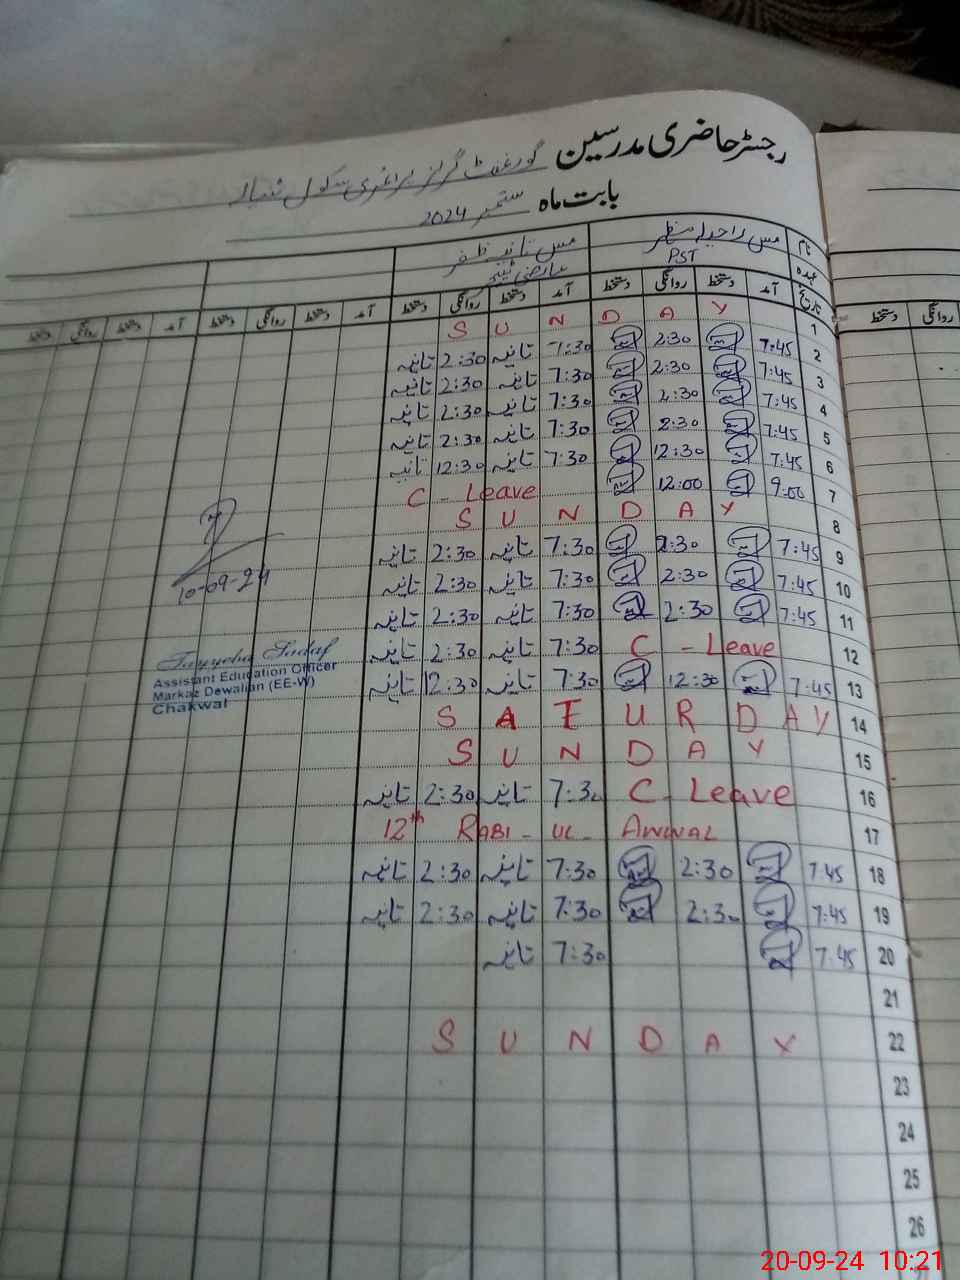 رجسٹر حاضری مدرسین گورنمنٹ گرلز پرائمری سکول
بابت ماہ ستمبر 2024
نام مس راحیلہ منظر مس تانیہ ظفر
عہدہ PST عارضی ٹیچر
تاریخ آمد دستخط روانگی دستخط آمد دستخط روانگی دستخط آمد دستخط روانگی دستخط آمد دستخط روانگی دستخط
1 SUNDAY
2 7:45 2:30 7:30 تانیہ 2:30 تانیہ
3 7:45 2:30 7:30 تانیہ 2:30 تانیہ
4 7:45 2:30 7:30 تانیہ 2:30 تانیہ
5 7:45 2:30 7:30 تانیہ 2:30 تانیہ
6 7:45 12:30 7:30 تانیہ 12:30 تانیہ
7 9:00 12:00 C - Leave
8 SUNDAY
9 7:45 2:30 7:30 تانیہ 2:30 تانیہ
10 7:45 2:30 7:30 تانیہ 2:30 تانیہ
11 7:45 2:30 7:30 تانیہ 2:30 تانیہ
12 C - Leave 7:30 تانیہ 2:30 تانیہ
13 7:45 12:30 7:30 تانیہ 12:30 تانیہ
14 SATURDAY
15 SUNDAY
16 C - Leave 7:30 تانیہ 2:30 تانیہ
17 12th RABI - UL - AWWAL
18 7:45 2:30 7:30 تانیہ 2:30 تانیہ
19 7:45 2:30 7:30 تانیہ 2:30 تانیہ
20 7:45 7:30 تانیہ
21
22 SUNDAY
23
24
25
26
10-09-24
Tayyeba Sadaf
Assistant Education Officer
Markaz Dewalian (EE-W)
Chakwal
روانگی دستخط
20-09-24 10:21